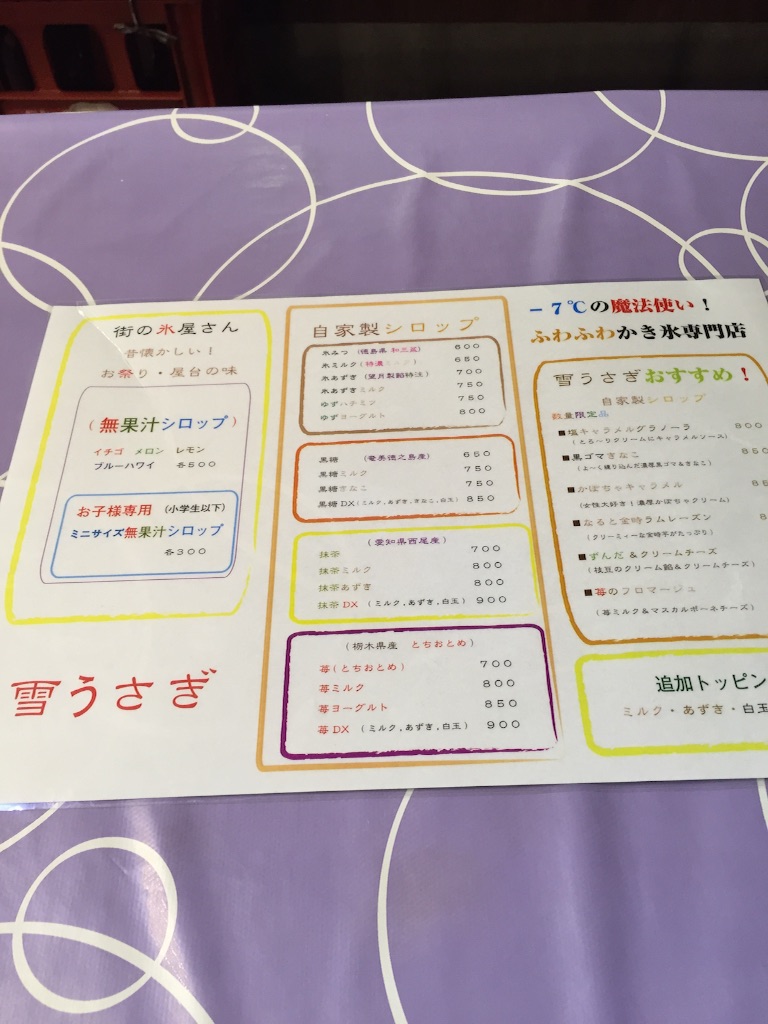 街の氷屋さん
昔懐かしい！
お祭り・屋台の味
（無果汁シロップ）
イチゴ メロン レモン
ブルーハワイ 各500
お子様専用 （小学生以下）
ミニサイズ無果汁シロップ
各300
雪うさぎ
自家製シロップ
氷みつ （徳島県 和三盆） 600
氷ミルク （特濃ミルク） 650
氷あずき （望月製餡特注） 700
氷あずきミルク 750
ゆずハチミツ 750
ゆずヨーグルト 800
黒糖 （奄美徳之島産） 650
黒糖ミルク 750
黒糖きなこ 750
黒糖DX （ミルク,あずき,きなこ,白玉） 850
（愛知県西尾産）
抹茶 700
抹茶ミルク 800
抹茶あずき 800
抹茶DX （ミルク,あずき,白玉） 900
（栃木県産 とちおとめ）
苺（とちおとめ） 700
苺ミルク 800
苺ヨーグルト 850
苺DX （ミルク,あずき,白玉） 900
－7℃の魔法使い！
ふわふわかき氷専門店
雪うさぎおすすめ！
自家製シロップ
数量限定品
■塩キャラメルグラノーラ 800
（とろ〜りクリームにキャラメルソース）
■黒ゴマきなこ 850
（よ〜く練り込んだ濃厚黒ゴマ＆きなこ）
■かぼちゃキャラメル
（女性大好き！濃厚かぼちゃクリーム）
■なると金時ラムレーズン
（クリーミィーな金時芋がたっぷり）
■ずんだ＆クリームチーズ
（枝豆のクリーム餡＆クリームチーズ）
■苺のフロマージュ
（苺ミルク＆マスカルポーネチーズ）
追加トッピン
ミルク・あずき・白玉